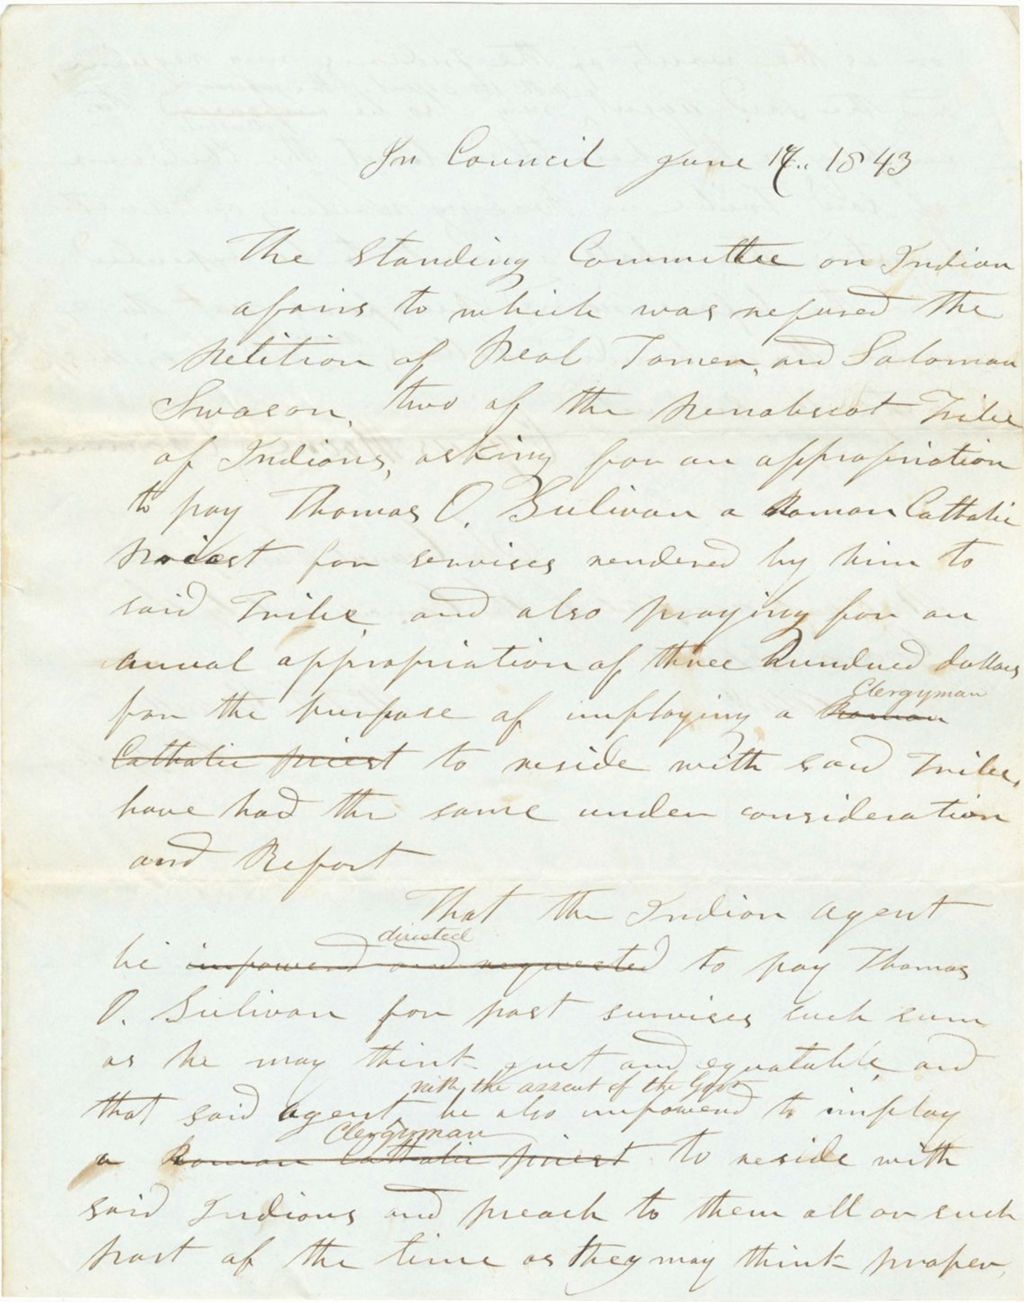 In Council June 17.. 1843
The Standing Committee on Indian
afairs to which was refured the
Petition of Neal Tomer, and Soloman
Swason, two of the Penabscot Tribe
of Indians, asking for an appropriation
to pay Thomas O. Sulivan a Roman Cathalic
Priest for servises rendered by him to
said Tribe, and also praying for an
anual appropriation of three Hundred dollars
Clergyman
for the purpose of imploying a Roman
Cathalic priest to reside with said Tribe,
have had the same under consideration
and Report
That the Indian agent
directed
be impowered and requested to pay Thomas
O. Sulivan for past survises such sum
as he may think just and equatable, and
with the assent of the Govr
that said agent, be also impowered to imploy
Clergyman
a Roman Cathalic priest to reside with
said Indians and preach to them all or such
part of the time as they may think proper,